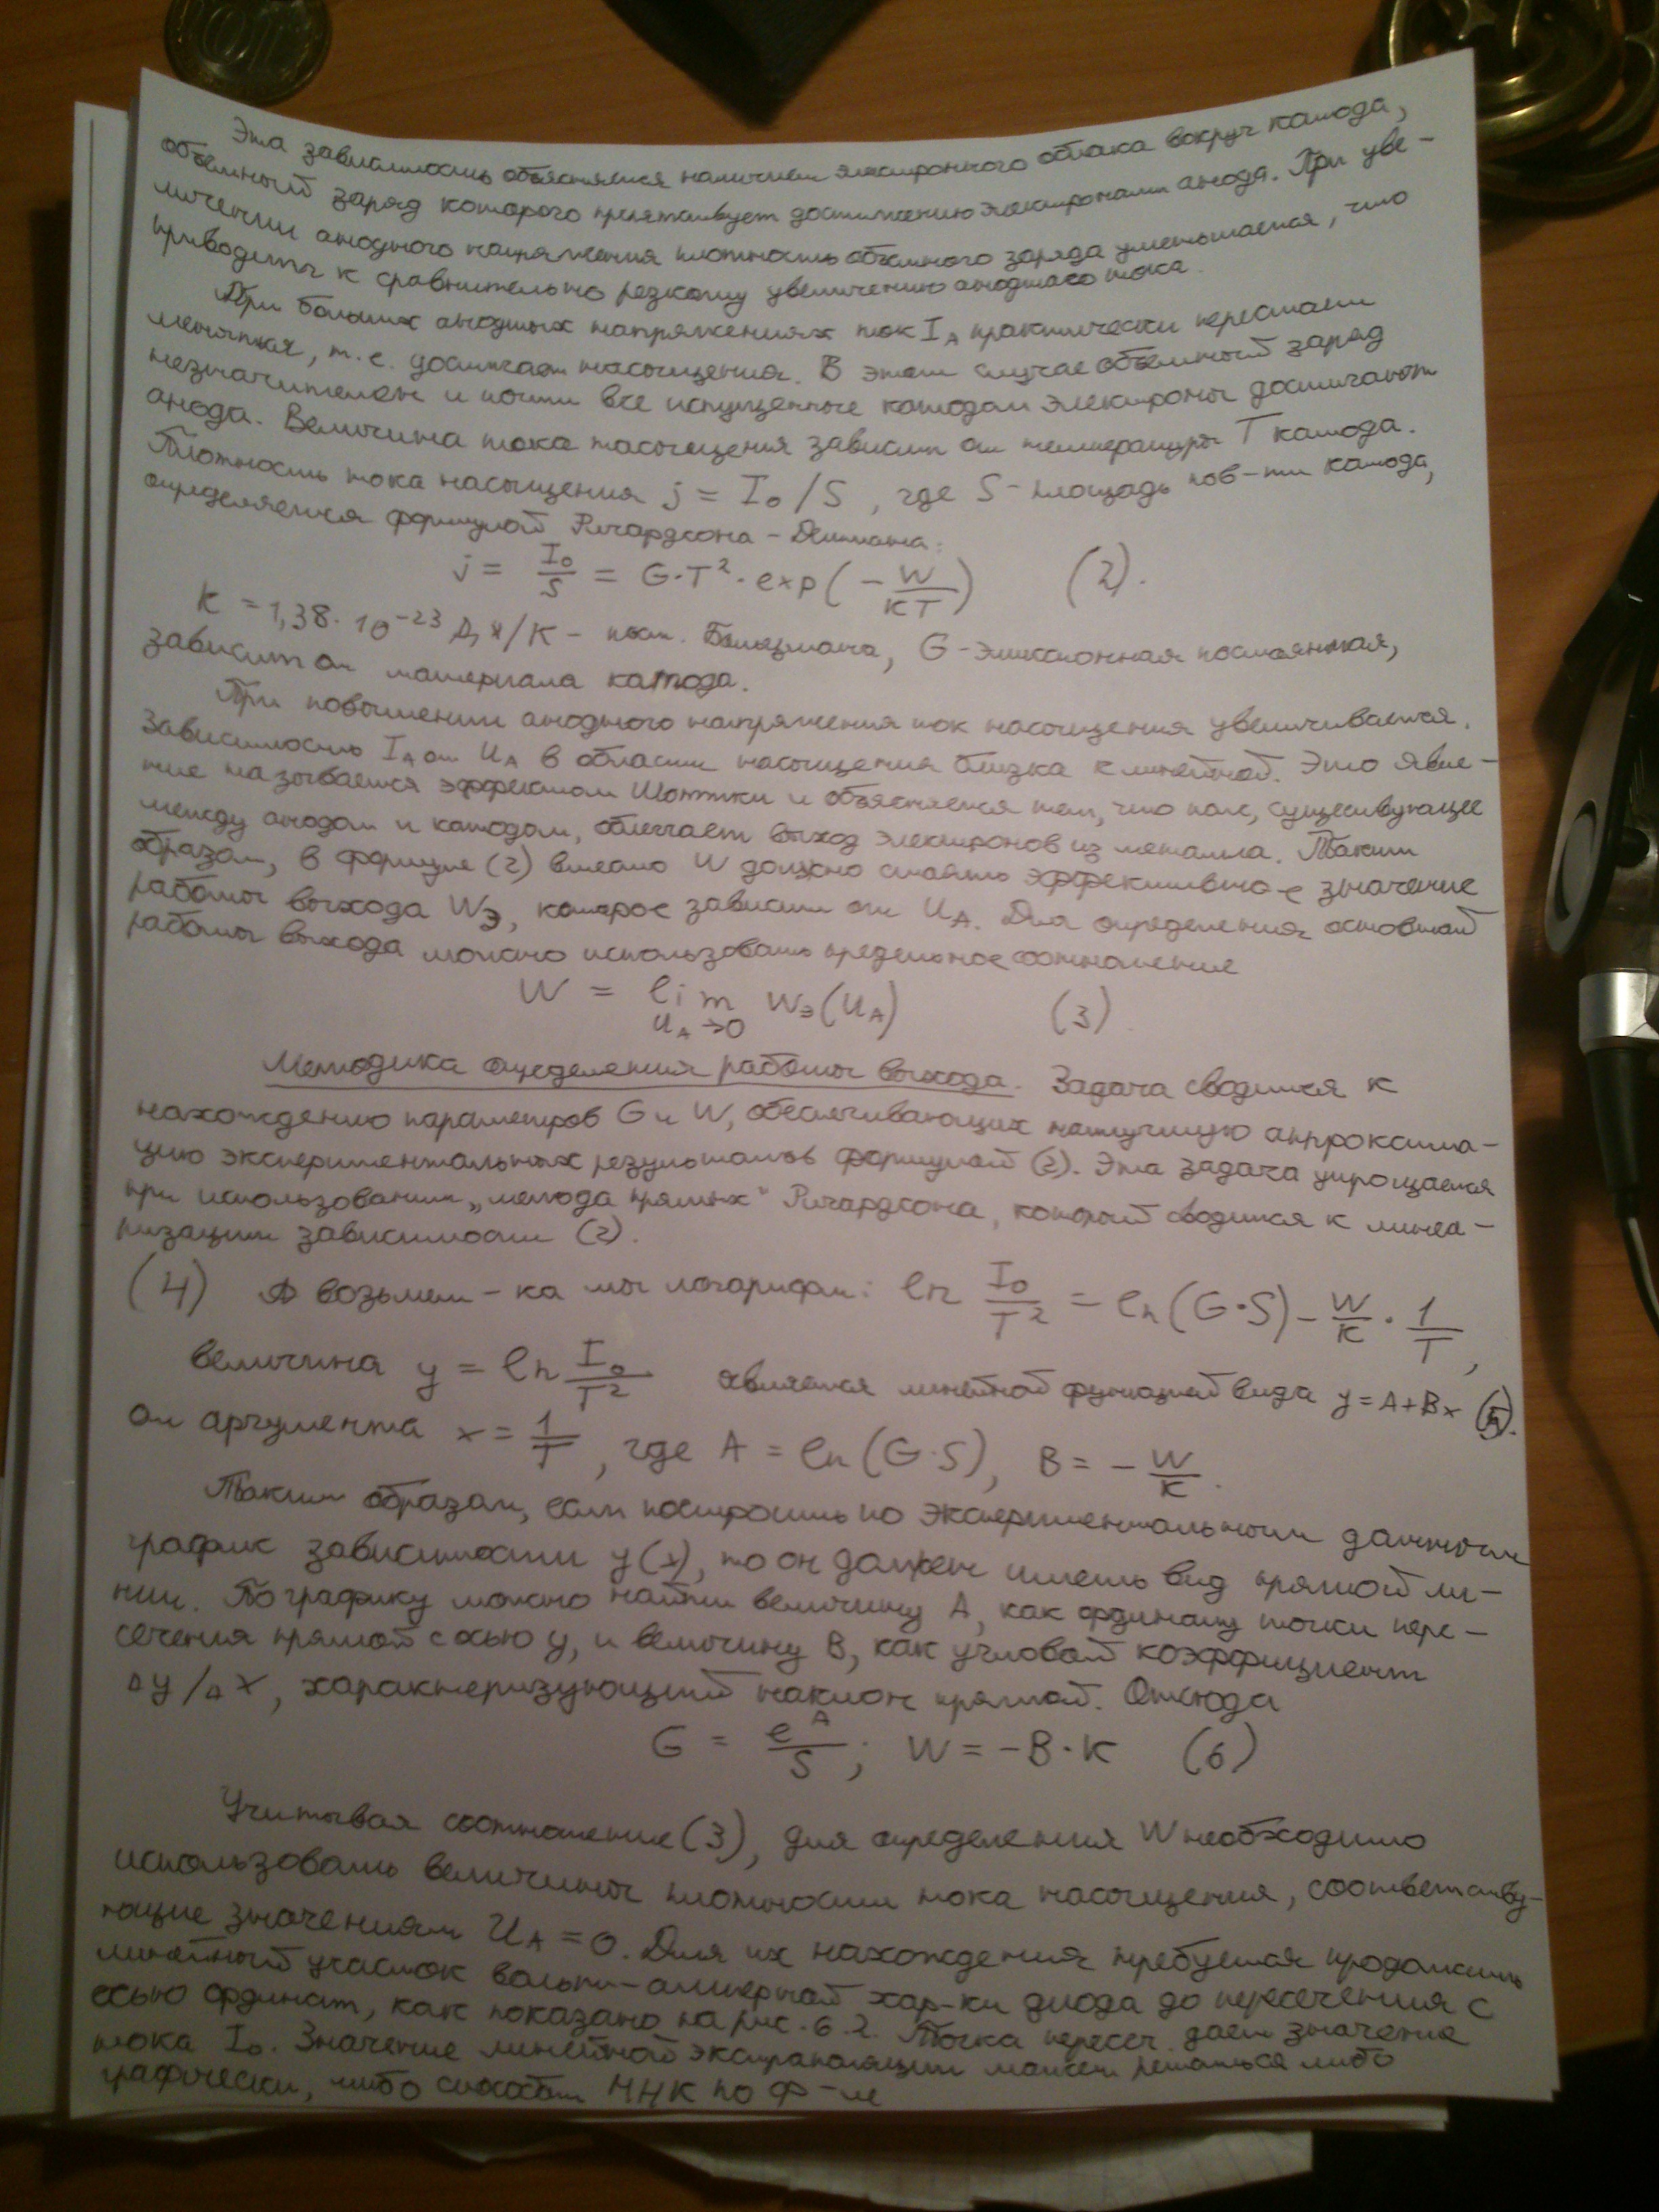 Эта зависимость объясняется наличием электронного облака вокруг катода,
объёмный заряд которого препятствует достижению электронами анода. При уве-
личении анодного напряжения плотность объёмного заряда уменьшается, что
приводить к сравнительно резкому увеличению анодного тока.
При больших анодных напряжениях ток I_A практически перестаёт
меняться, т.е. достигает насыщения. В этом случае объёмный заряд
незначителен и почти все испущенные катодом электроны достигают
анода. Величина тока насыщения зависит от температуры T катода.
Плотность тока насыщения j = I₀/S, где S - площадь пов-ти катода,
определяется формулой Ричардсона - Дешмана:
j = I₀/S = G·T²·exp(-W/KT) (2).
K = 1,38·10⁻²³ Дж/К - пост. Больцмана, G - эмиссионная постоянная,
зависит от материала катода.
При повышении анодного напряжения ток насыщения увеличивается.
Зависимость I_A от U_A в области насыщения близка к линейной. Это явле-
ние называется эффектом Шоттки и объясняется тем, что поле, существующее
между анодом и катодом, облегчает выход электронов из металла. Таким
образом, в формуле (2) вместо W должно стоять эффективное значение
работы выхода W_Э, которое зависит от U_A. Для определения основной
работы выхода можно использовать предельное соотношение
W = lim W_Э(U_A) (3)
U_A→0
Методика определения работы выхода. Задача сводится к
нахождению параметров G и W, обеспечивающих наилучшую аппроксима-
цию экспериментальных результатов формулой (2). Эта задача упрощается
при использовании „метода прямых" Ричардсона, который сводится к линеа-
ризации зависимости (2).
(4) А возьмём-ка мы логарифм: ln I₀/T² = ln(G·S) - W/K · 1/T,
величина y = ln I₀/T² является линейной функцией вида y = A+Bx (5).
от аргумента x = 1/T, где A = ln(G·S), B = -W/K.
Таким образом, если построить по экспериментальным данным
график зависимости y(x), то он должен иметь вид прямой ли-
нии. По графику можно найти величину A, как ординату точки пере-
сечения прямой с осью y, и величину B, как угловой коэффициент
Δy/Δx, характеризующий наклон прямой. Отсюда
G = e^A/S; W = -B·K (6)
Учитывая соотношение (3), для определения W необходимо
использовать величины плотности тока насыщения, соответству-
ющие значениям U_A = 0. Для их нахождения требуется продолжить
линейный участок вольт-амперной хар-ки диода до пересечения с
осью ординат, как показано на рис. 6.2. Точка пересеч. даёт значение
тока I₀. Значение линейной экстраполяции может решаться либо
графически, либо способом МНК по ф-ле